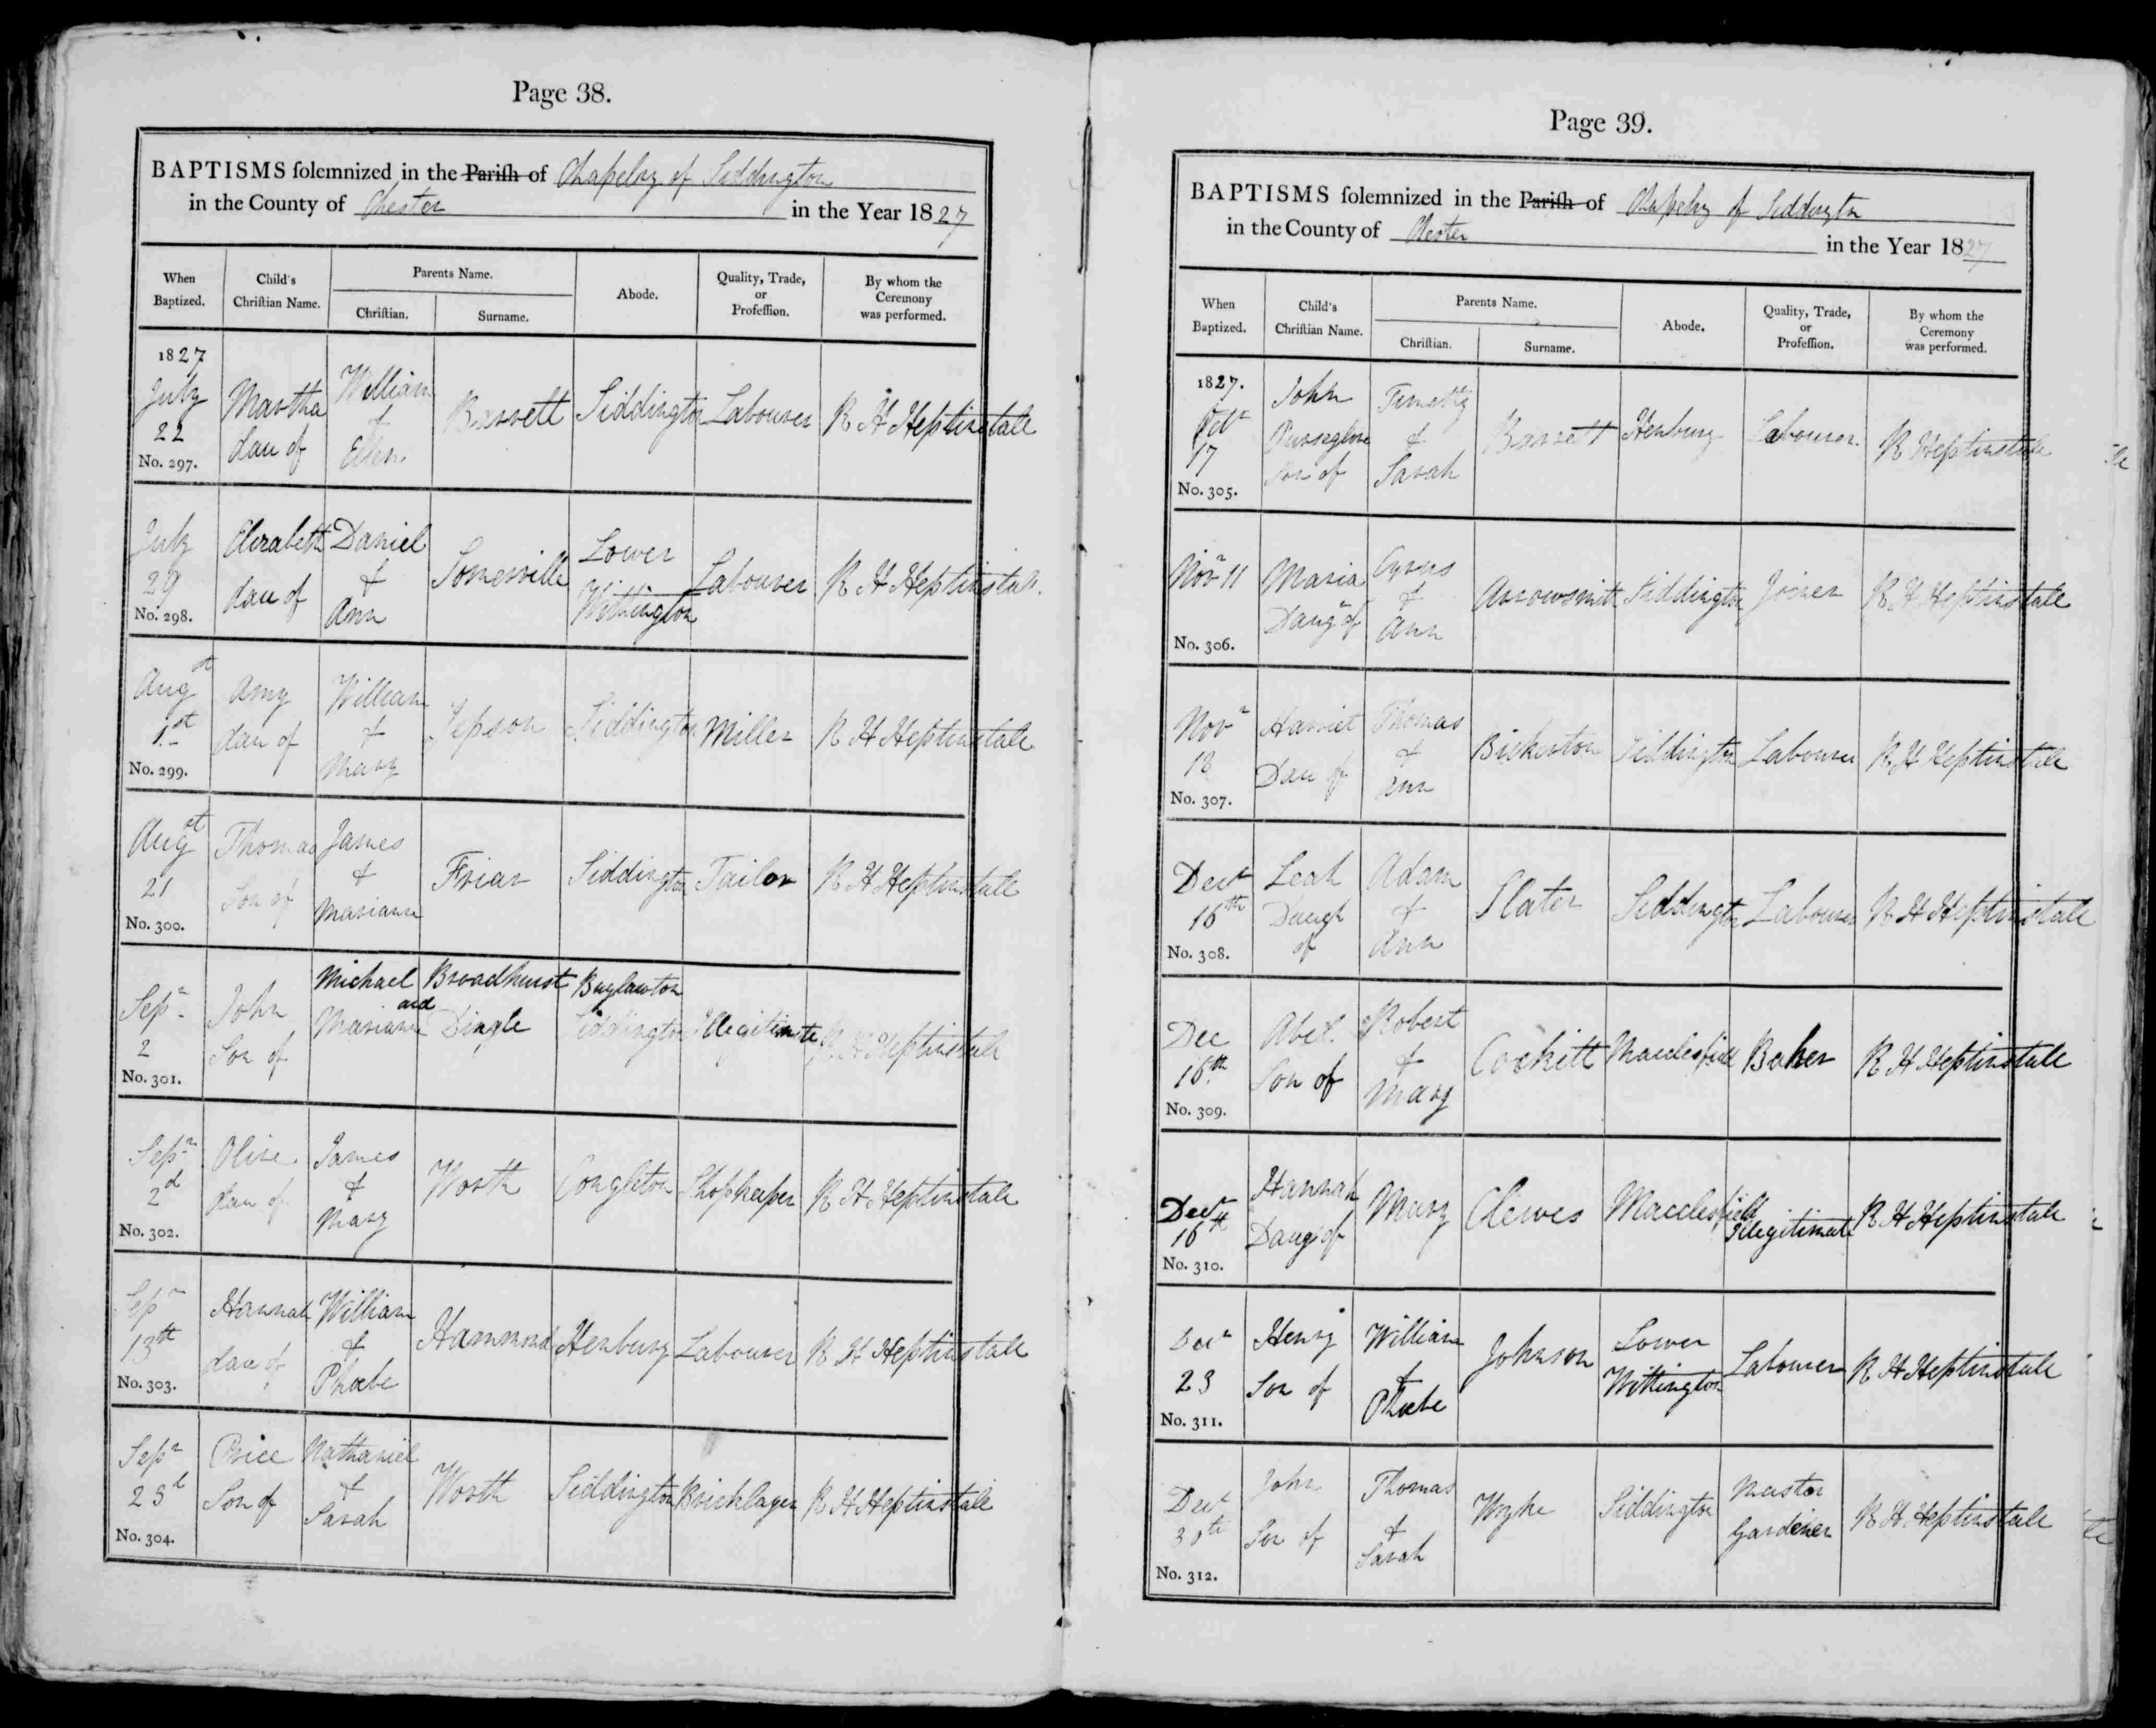 Page 38.
BAPTISMS solemnized in the Parish of Chapelry of Siddington
in the County of Chester in the Year 1827
When Baptized.
Child's Christian Name.
Parents Name.
Christian.
Surname.
Abode.
Quality, Trade, or Profession.
By whom the Ceremony was performed.
1827 July 22 No. 297.
Martha dau of
William & Ellen
Barrett
Siddington
Labourer
R H Heptinstale
July 29 No. 298.
Elizabeth dau of
Daniel & Ann
Somerville
Lower Withington
Labourer
R H Heptinstale.
Augst 1st No. 299.
Amy dau of
William & Mary
Jepson
Siddington
Miller
R H Heptinstale
Augst 21 No. 300.
Thomas Son of
James & Marianne
Friar
Siddington
Tailor
R H Heptinstale
Sepr 2 No. 301.
John Son of
Michael and Mariann
Broadhurst Dingle
Buglawton Siddington
Illegitimate
R H Heptinstale
Sepr 2d No. 302.
Olive dau of
James & Mary
Worth
Congleton
Shopkeeper
R H Heptinstale
Sepr 13th No. 303.
Hannah dau of
William & Phoebe
Hammond
Henbury
Labourer
R H Heptinstale
Sepr 23d No. 304.
Price Son of
Nathaniel & Sarah
Worth
Siddington
Bricklayer
R H Heptinstale
Page 39.
BAPTISMS solemnized in the Parish of Chapelry of Siddington
in the County of Chester in the Year 1827
When Baptized.
Child's Christian Name.
Parents Name.
Christian.
Surname.
Abode.
Quality, Trade, or Profession.
By whom the Ceremony was performed.
1827. Octr 17 No. 305.
John Purseglove Son of
Timothy & Sarah
Barrett
Henbury
Labourer.
R Heptinstale
Novr 11 No. 306.
Maria Daugr of
Cyrus & Ann
Arrowsmith
Siddington
Joiner
R H Heptinstale
Novr 18 No. 307.
Harriet Dau of
Thomas & Ann
Bickerton
Siddington
Labourer
R H Heptinstale
Decr 16th No. 308.
Leah Daugh of
Adam & Ann
Slater
Siddington
Labourer
R H Heptinstale
Dec 16th No. 309.
Abel. Son of
Robert & Mary
Cockitt
Macclesfield
Baker
R H Heptinstale
Decr 16th No. 310.
Hannah Daugr of
Mary
Clewes
Macclesfield
Illegitimate
R H Heptinstale
Decr 23 No. 311.
Henry Son of
William & Phoebe
Johnson
Lower Withington
Labourer
R H Heptinstale
Decr 30th No. 312.
John Son of
Thomas & Sarah
Wyke
Siddington
Master Gardener
R H Heptinstale